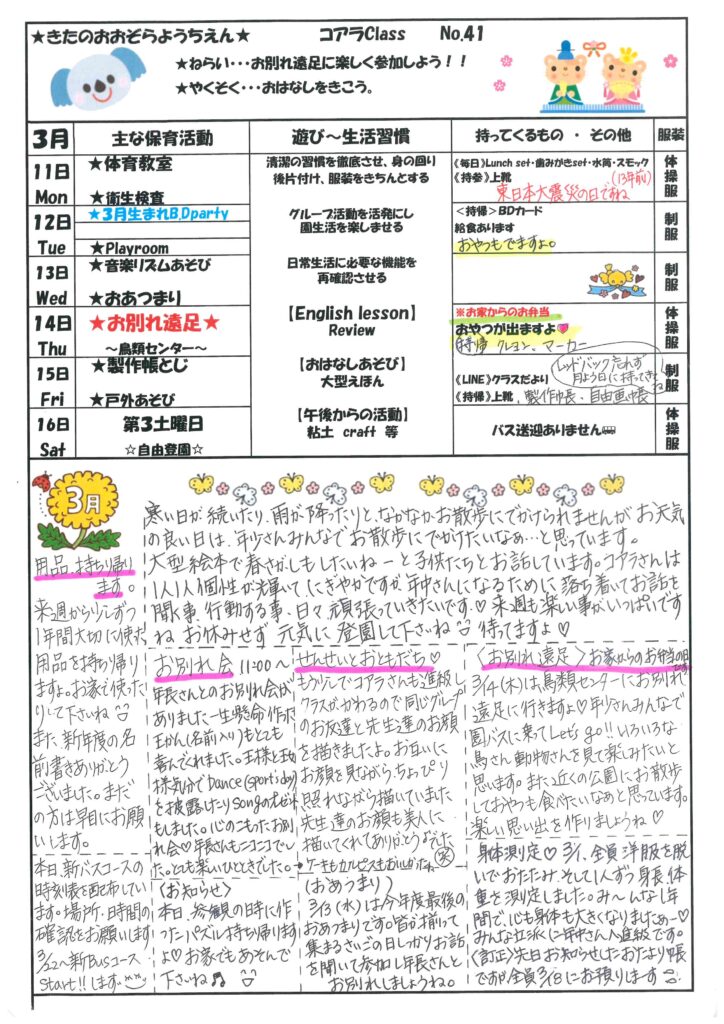 ★きたのおおぞらようちえん★ コアラClass No.41
★ねらい・・・お別れ遠足に楽しく参加しよう！！
★やくそく・・・おはなしをきこう。
3月 主な保育活動 遊び～生活習慣 持ってくるもの ・ その他 服装
11日 Mon
★体育教室
★衛生検査
清潔の習慣を徹底させ、身の回り
後片付け、服装をきちんとする
《毎日》Lunch set・歯みがきset・水筒・スモック
《持参》上靴 (13年前)
東日本大震災の日ですね
体操服
12日 Tue
★3月生まれB.Dparty
★Playroom
グループ活動を活発にし
園生活を楽しませる
＜持帰＞BDカード
給食あります
おやつもでますよ。
制服
13日 Wed
★音楽リズムあそび
★おあつまり
日常生活に必要な機能を
再確認させる
制服
14日 Thu
★お別れ遠足★
～鳥類センター～
【English lesson】
Review
※お家からのお弁当
おやつが出ますよ
持帰 クレヨン、マーカー
体操服
15日 Fri
★製作帳とじ
★戸外あそび
【おはなしあそび】
大型えほん
レッドバック忘れず
月よう日に持ってきてね
《LINE》クラスだより
《持帰》上靴、製作帳・自由画帳
制服
16日 Sat
第3土曜日
☆自由登園☆
【午後からの活動】
粘土 craft 等
バス送迎ありません
体操服
3月
寒い日が続いたり、雨が降ったりと、なかなかお散歩にでかけられませんがお天気
の良い日は、年少さんみんなでお散歩にでかけたいなぁ…と思っています。
大型絵本で春さがしもしたいねーと子供たちとお話しています。コアラさんは
1人1人個性が輝いてにぎやかですが、年中さんになるために落ち着いてお話を
聞く事、行動する事、日々頑張っていきたいです♡来週も楽しい事がいっぱいです
ね お休みせず 元気に登園して下さいね 待ってますよ♡
用品持ち帰り
ます。
来週から少しずつ
1年間大切に使た
用品を持ち帰り
ますよ。お家で使った
りして下さいね
また新年度の名
前書きありがとう
ございました。まだ
の方は早目にお願
いします。
お別れ会 11:00～
年長さんとのお別れ会が
ありました一生懸命作た
王かん(名前入り)もとても
喜んでくれました。王様と王女
様気分でDance(Sportsday)
を披露けたりSongのプレゼント
もしました。心のこもったお別
れ会♡年長さんもニコニコでし
た。とても楽しいひとときでした。
せんせいとおともだち♡
もう少しでコアラさんも進級し
クラスがかわるので同じグループ
のお友達と先生達のお顔
を描きましたよ。お互いに
お顔を見ながら、ちょっぴり
照れながら描いていました
先生達のお顔も美人に
描いてくれてありがとう♪でした
ケーキもカルピスもおいしかったねー
〈お別れ遠足〉お家からのお弁当の日
3/14(木)は鳥類センターにお別れ
遠足に行きますよ♡年少さんみんなで
園バスに乗ってLet's go!!いろいろな
鳥さん、動物さんを見て楽しみたいと
思います。また近くの公園にお散歩
しておやつも食べたいなぁと思っています。
楽しい思い出を作りましょうね♡
本日、新バスコースの
時刻表を配布してい
ます。場所・時間の
確認をお願いします
3/22～新Busコース
Start!!します
〈お知らせ〉
本日、参観の時に作
ったパズル持ち帰ります
よ♡お家でもあそんで
下さいね♫
(おあつまり)
3/13(水)は今年度最後の
おあつまりです。皆が揃って
集まるさいごの日しっかりお話
を聞いて参加し年長さんと
お別れしましょうね。
身体測定♡3/1、全員洋服を脱
いでおたたみ、そして1人ずつ身長、体
重を測定しました。み～んな1年
間で、心も身体も大きくなりましたぁー♡
みんな立派に年中さんへ進級です。
〈訂正〉先日お知らせしたおたより帳
ですが全員3/18にお預りします